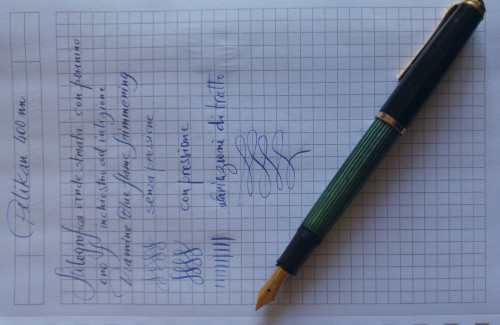 Pelikan 400 nn.
Stilografica verde striata con pennino
oro inchiostro ad
Diamine Blue flame Shimmering
senza pressione
con pressione
variazioni di tratto